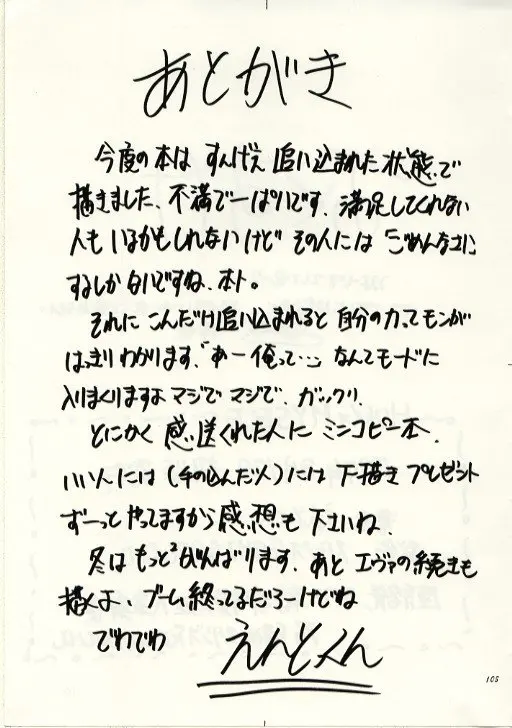 あとがき
今度の本は すんげえ 追い込まれた 状態で
描きました、不満で一ぱいです、満足してくれない
人も いるかもしれないけど その人には「ごめんなさいに
するしかないですね、ホト。
それに こんだけ追い込まれると 自分の力ってモンが
はっきりわかります、「あー俺って…」なんてモードに
入りまくりますよ マジで マジで、ガックリ、
とにかく 感い送くれた人に ミンコピー本、
いい人には(手の込んだ人)には 下描き プレゼント
ずーっと やってますから 感想も 下さいね、
冬は もっと2がんばります、あと エヴァの続きも
描くよ、ブーム終ってるだろーけどね
でわでわ
えんとくん
105